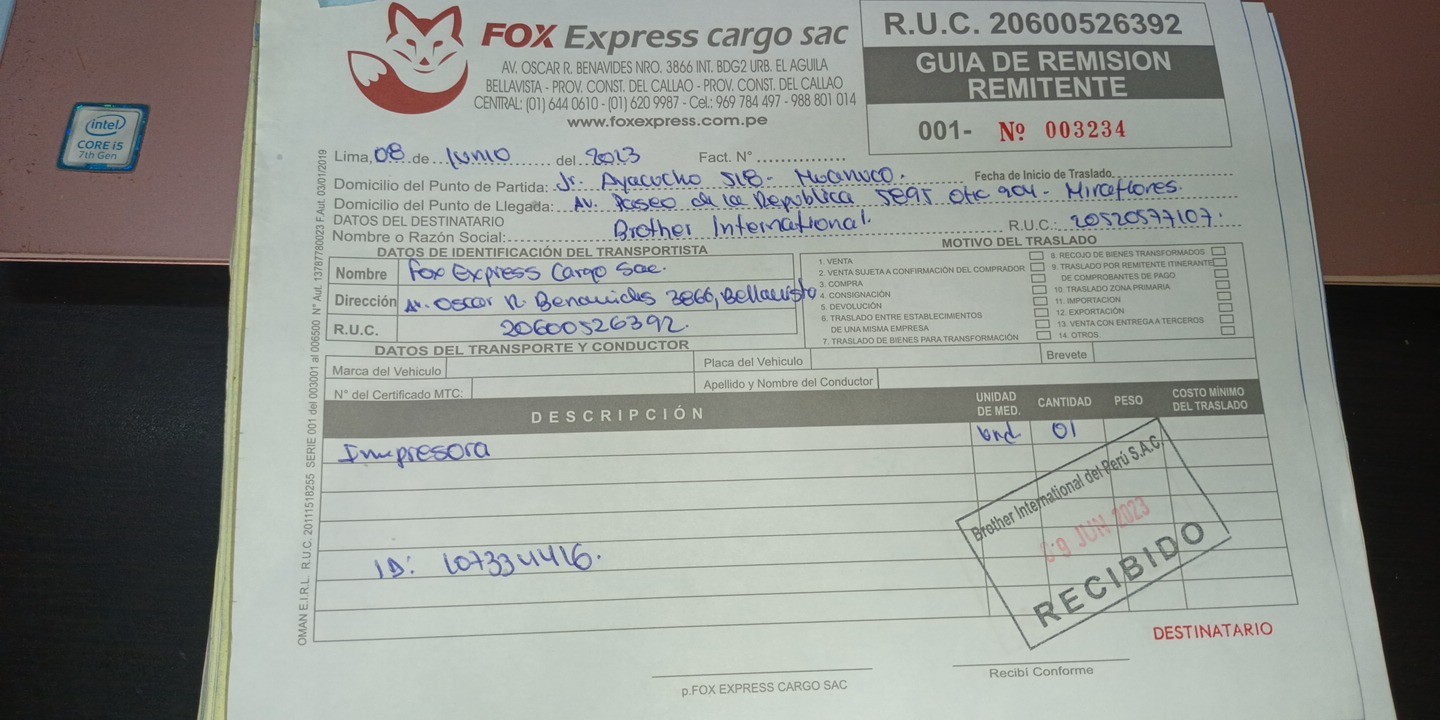 intel
CORE i5
7th Gen
FOX Express cargo sac
AV. OSCAR R. BENAVIDES NRO. 3866 INT. BDG2 URB. EL AGUILA
BELLAVISTA - PROV. CONST. DEL CALLAO - PROV. CONST. DEL CALLAO
CENTRAL: (01) 644 0610 - (01) 620 9987 - Cel.: 969 784 497 - 988 801 014
www.foxexpress.com.pe
R.U.C. 20600526392
GUIA DE REMISION
REMITENTE
001- Nº 003234
Lima, 08 de Junio del 2023 Fact. N°
Domicilio del Punto de Partida: Jr. Ayacucho 518- Huanuco. Fecha de Inicio de Traslado
Domicilio del Punto de Llegada: Av. Paseo de la Republica 5895 Ofic 904- Miraflores.
DATOS DEL DESTINATARIO
Nombre o Razón Social: Brother International. R.U.C.: 20520577107.
DATOS DE IDENTIFICACIÓN DEL TRANSPORTISTA
Nombre Fox Express Cargo Sac.
Dirección Av. Oscar R. Benavides 3866, Bellavista
R.U.C. 20600526392.
MOTIVO DEL TRASLADO
1. VENTA
2. VENTA SUJETA A CONFIRMACIÓN DEL COMPRADOR
3. COMPRA
4. CONSIGNACIÓN
5. DEVOLUCIÓN
6. TRASLADO ENTRE ESTABLECIMIENTOS
DE UNA MISMA EMPRESA
7. TRASLADO DE BIENES PARA TRANSFORMACIÓN
8. RECOJO DE BIENES TRANSFORMADOS
9. TRASLADO POR REMITENTE ITINERANTE
DE COMPROBANTES DE PAGO
10. TRASLADO ZONA PRIMARIA
11. IMPORTACIÓN
12. EXPORTACIÓN
13. VENTA CON ENTREGA A TERCEROS
14. OTROS
DATOS DEL TRANSPORTE Y CONDUCTOR
Marca del Vehiculo Placa del Vehiculo Brevete
N° del Certificado MTC: Apellido y Nombre del Conductor
DESCRIPCIÓN UNIDAD DE MED. CANTIDAD PESO COSTO MÍNIMO DEL TRASLADO
Impresora Und 01
ID: 107334416.
Brother International del Perú S.A.C
09 JUN 2023
RECIBIDO
DESTINATARIO
p.FOX EXPRESS CARGO SAC
Recibí Conforme
OMAN E.I.R.L R.U.C. 20111518255 SERIE 001 del 003001 al 006500 N° Aut. 13787780023 F.Aut. 03/01/2019